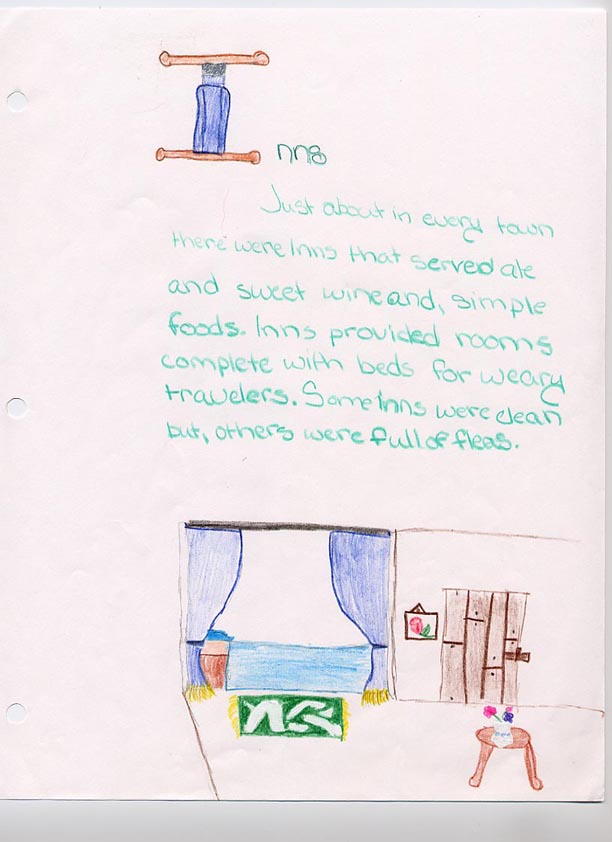 Inns
Just about in every town
there were Inns that served ale
and sweet wine and, simple
foods. Inns provided rooms
complete with beds for weary
travelers. Some Inns were clean
but, others were full of fleas.